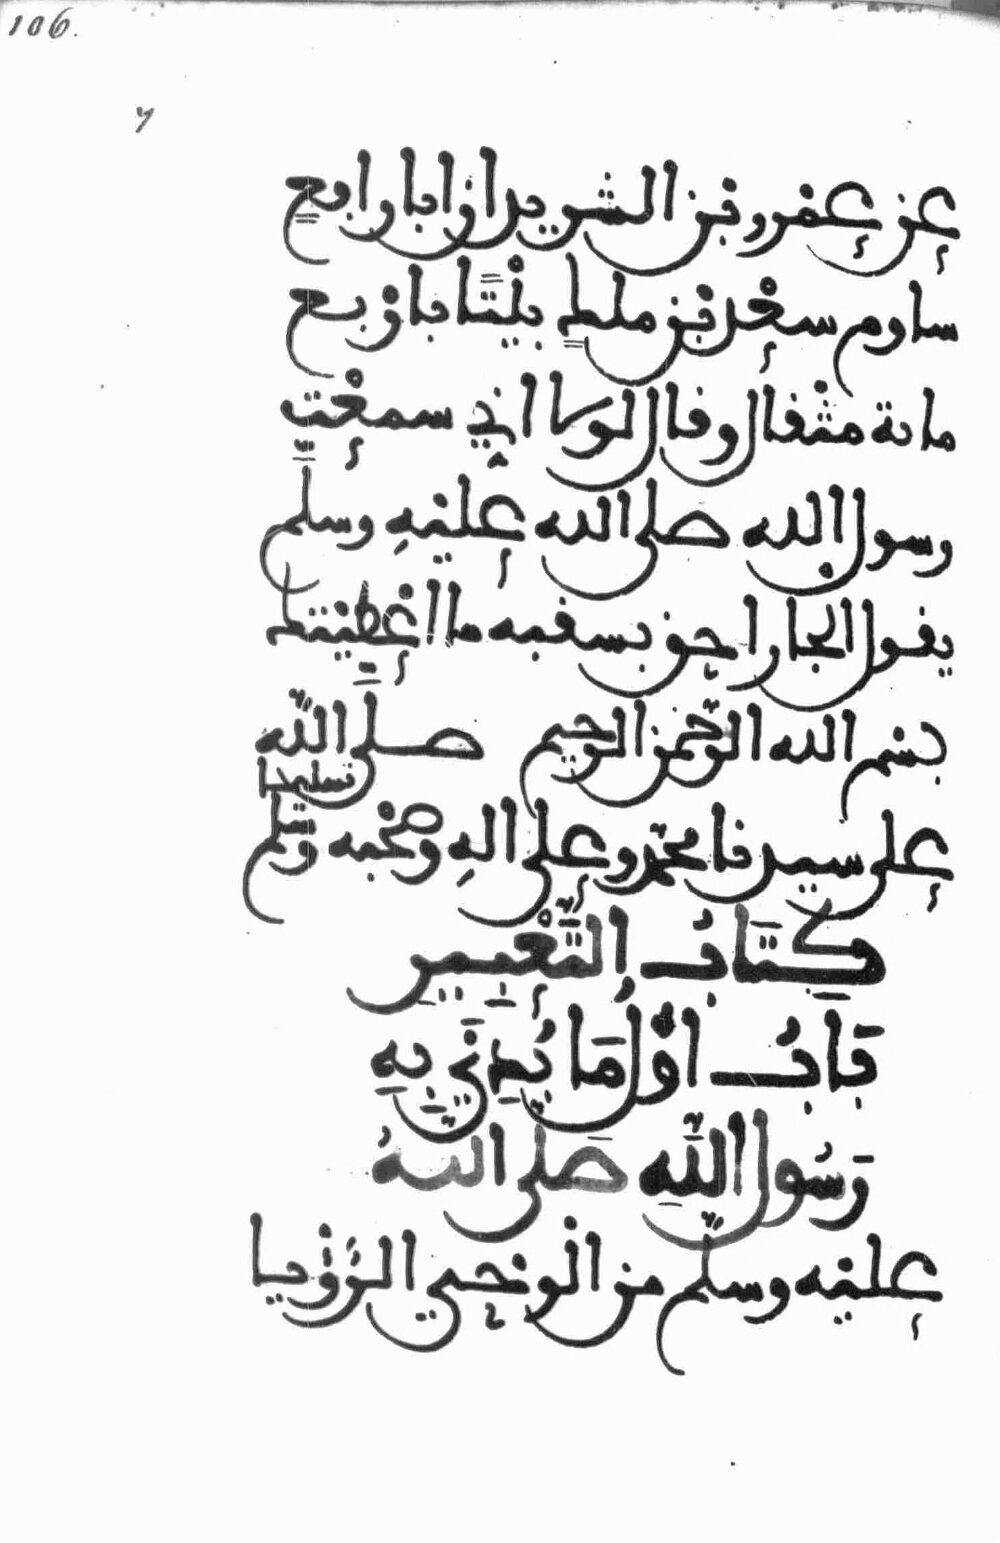 106.
عن عمرو بن الشريد ان ابا رابع
ساوم سعد بن ملك بيتا باربع
مائة مثقال وقال لولا اني سمعت
رسول الله صلى الله عليه وسلم
يقول الجار احق بسقبه ما اعطيتك
بسم الله الرحمن الرحيم صلى الله
تسليما
على سيدنا محمد وعلى اله وصحبه وسلم
كِتَابُ التَّعْبِيرِ
بَابُ اوَّلُ مَا بُدِئَ بِهِ
رَسُولُ اللَّهِ صَلى اللهُ
عليه وسلم من الوحي الرُّؤْيا